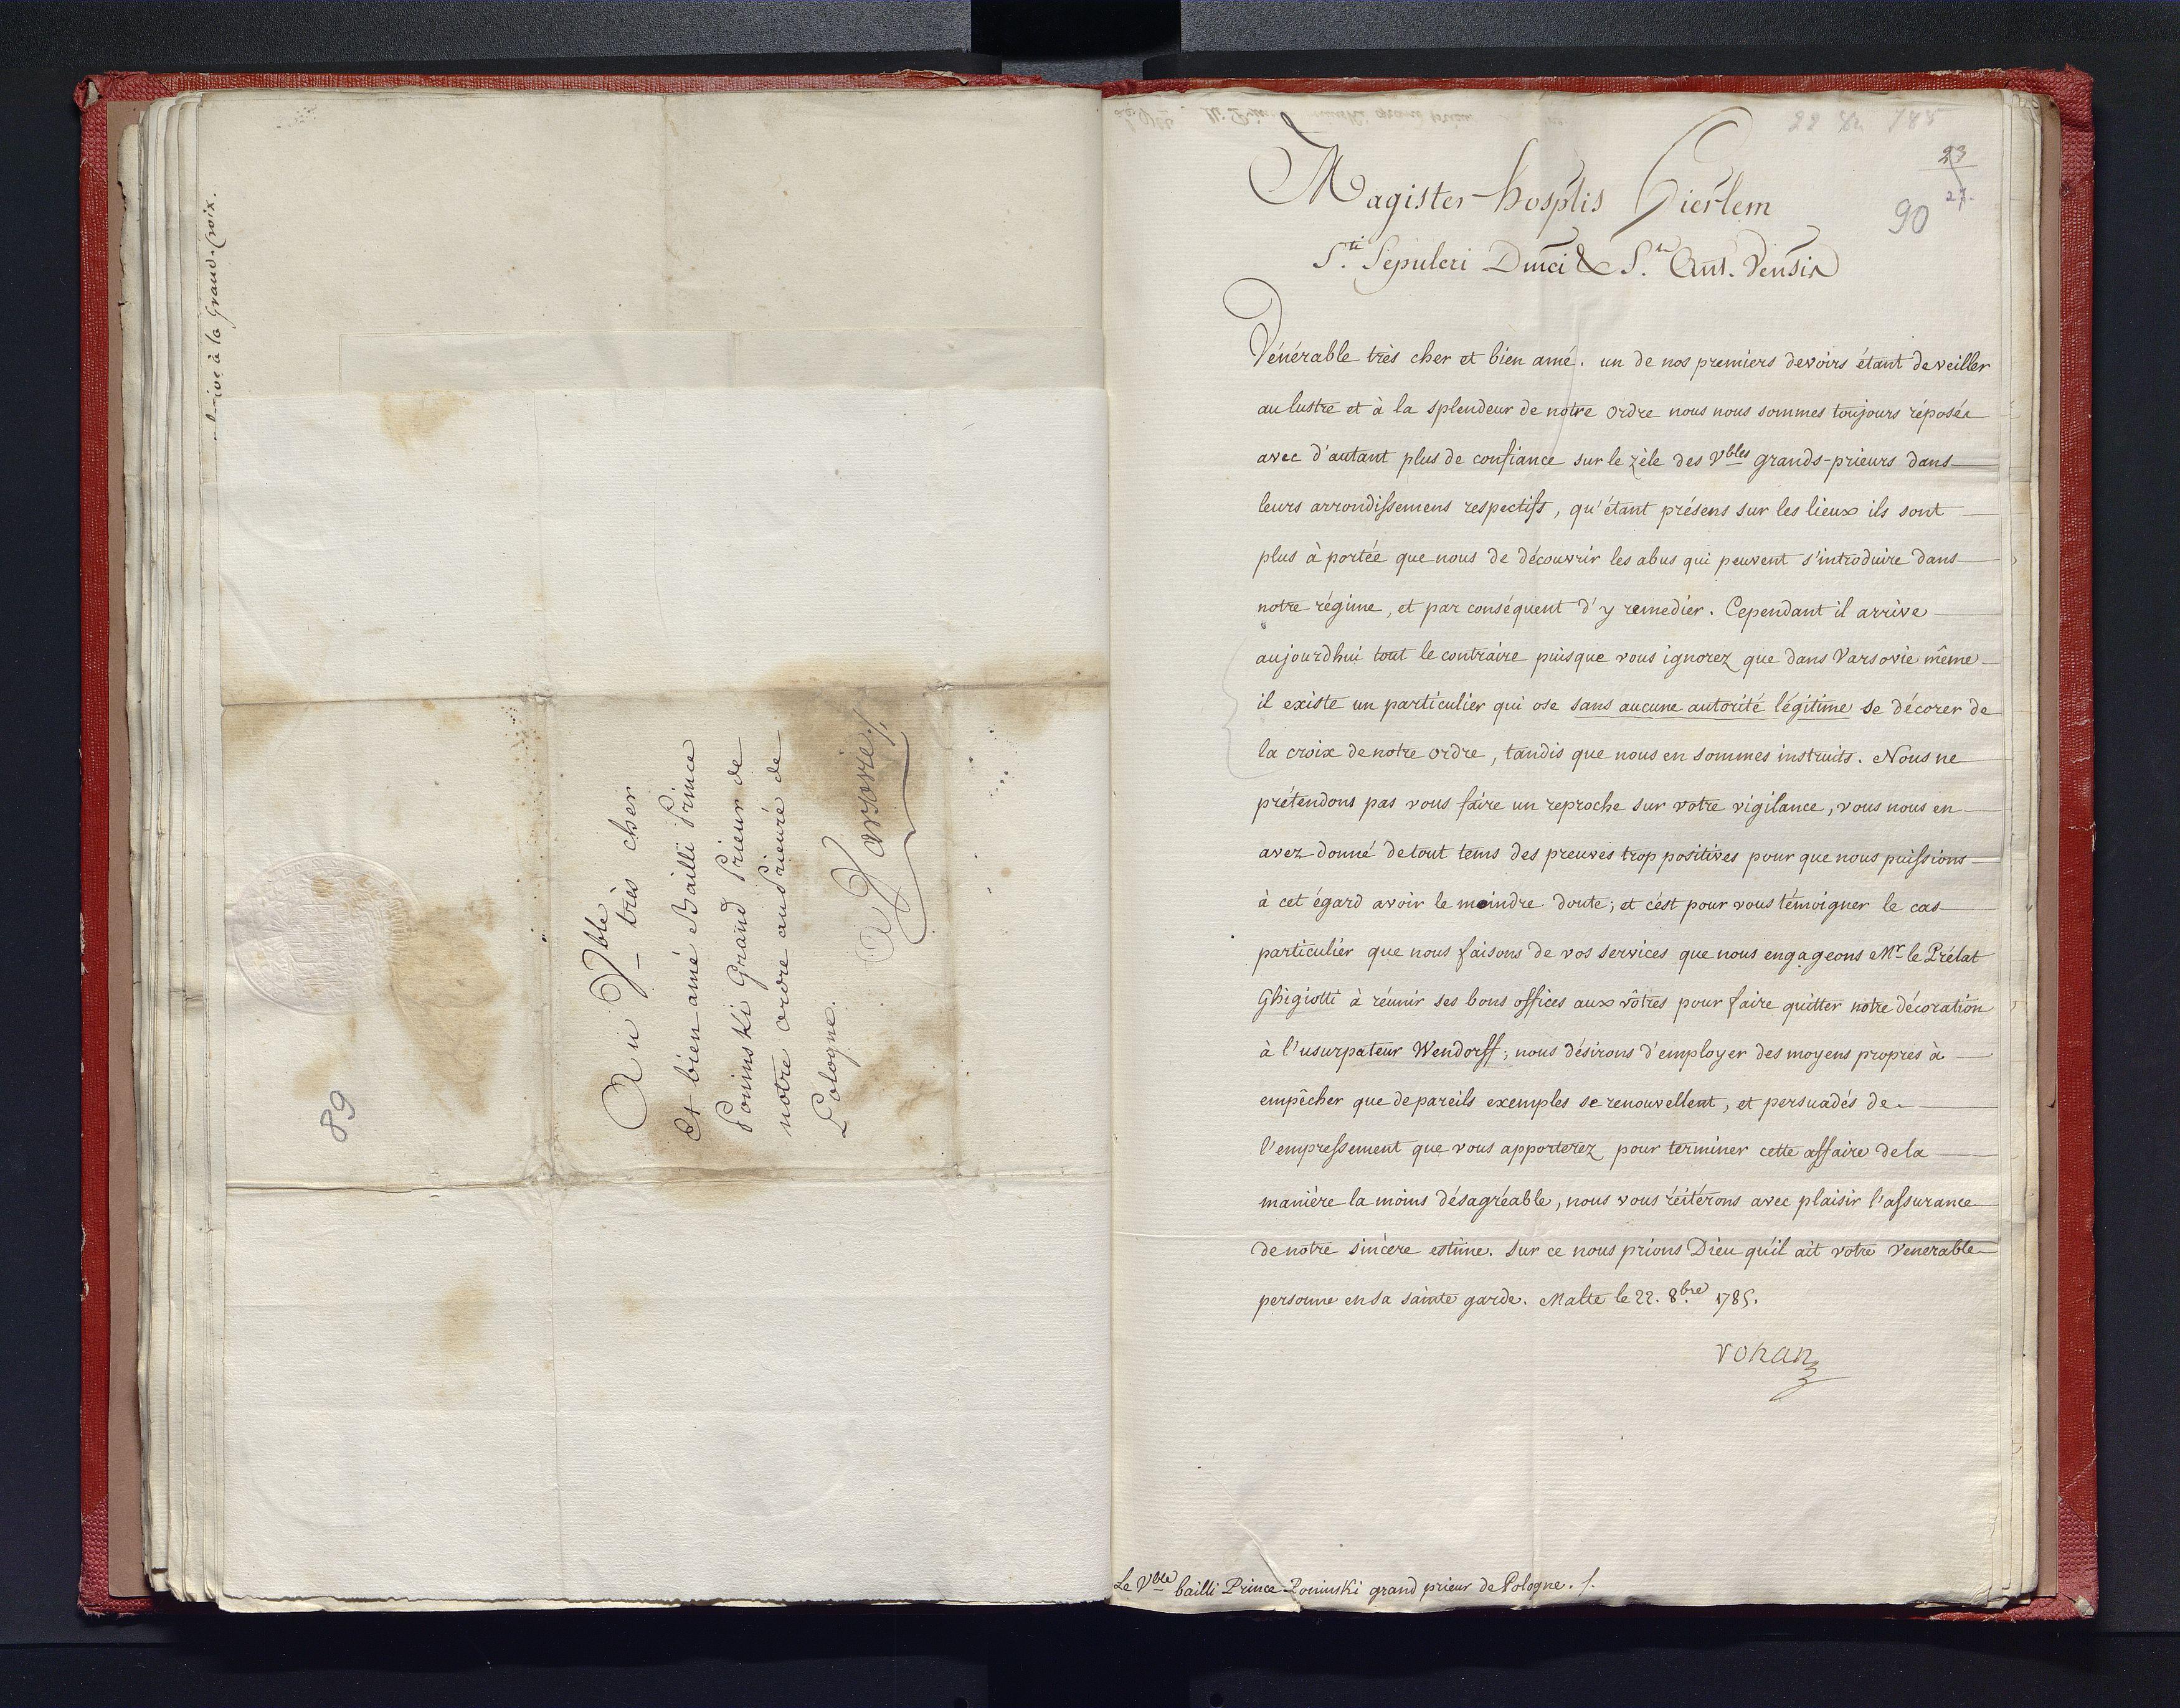 à la Grand-Croix.
89
Au Vble très cher
Et bien amé Bailli Prince
Poninski Grand Prieur de
notre ordre au Prieuré de
Pologne.
A Varsovie
23
27.
90
Magister hosplis Hierlem
S.ti Sepulcri Dnici & S.ti Ant. Vensis
Vénérable très cher et bien amé. un de nos premiers devoirs étant de veiller
au lustre et à la splendeur de notre ordre nous nous sommes toujours réposés
avec d'autant plus de confiance sur le zèle des Vbles grands-prieurs dans
leurs arrondissemens respectifs, qu'étant présens sur les lieux ils sont
plus à portée que nous de découvrir les abus qui peuvent s'introduire dans
notre régime, et par conséquent d'y remedier. Cependant il arrive
aujourdhui tout le contraire puisque vous ignorez que dans Varsovie même
il existe un particulier qui ose sans aucune autorité légitime se décorer de
la croix de notre ordre, tandis que nous en sommes instruits. Nous ne
prétendons pas vous faire un reproche sur votre vigilance, vous nous en
avez donné de tout tems des preuves trop positives pour que nous puissions
à cet égard avoir le moindre doute; et c'est pour vous témoigner le cas
particulier que nous faisons de vos services que nous engageons Mr. le Prélat
Ghigiotti à réunir ses bons offices aux vôtres pour faire quitter notre décoration
à l'usurpateur Wendorff; nous désirons d'employer des moyens propres à
empêcher que de pareils exemples se renouvellent, et persuadés de
l'empressement que vous apporterez pour terminer cette affaire de la
manière la moins désagréable, nous vous réitérons avec plaisir l'assurance
de notre sincere estime. sur ce nous prions Dieu qu'il ait votre venerable
personne en sa sainte garde. Malte le 22. 8bre 1785.
rohan
Le Vble bailli Prince Poninski grand prieur de Pologne. /.